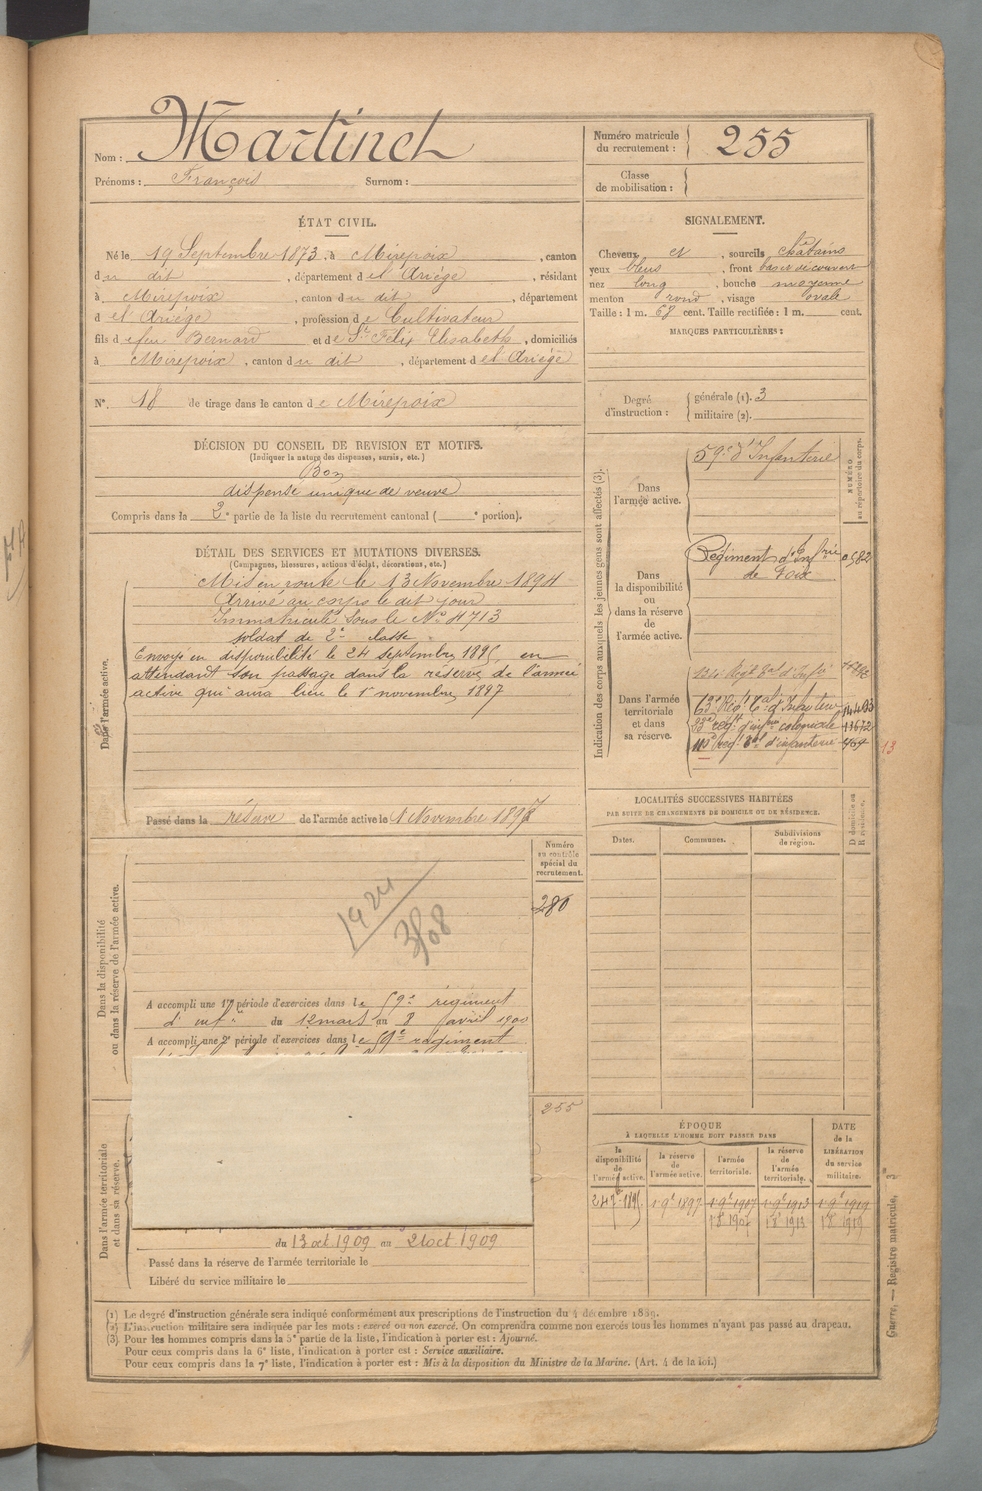 Nom : Martinet
Prénoms : François Surnom :
Numéro matricule du recrutement : 255
Classe de mobilisation :
ÉTAT CIVIL.
Né le 19 Septembre 1873, à Mirepoix, canton
du dit, département de l'Ariège, résidant
à Mirepoix, canton du dit, département
de l'Ariège, profession de Cultivateur
fils de feu Bernard et de St Félix Elisabeth, domiciliés
à Mirepoix, canton du dit, département de l'Ariège
N° 18 de tirage dans le canton de Mirepoix
SIGNALEMENT.
Cheveux et, sourcils châtains
yeux bleus, front bas et découvert
nez long, bouche moyenne
menton rond, visage ovale
Taille : 1 m. 68 cent. Taille rectifiée : 1 m. cent.
MARQUES PARTICULIÈRES :
Degré d'instruction : générale (1). 3
militaire (2).
DÉCISION DU CONSEIL DE REVISION ET MOTIFS.
(Indiquer la nature des dispenses, sursis, etc.)
Bon
dispensé unique de veuve
Compris dans la 2e partie de la liste du recrutement cantonal ( e portion).
DÉTAIL DES SERVICES ET MUTATIONS DIVERSES.
(Campagnes, blessures, actions d'éclat, décorations, etc.)
Dans l'armée active.
Mis en route le 13 Novembre 1894
Arrivé au corps le dit jour
Immatriculé sous le No 4713
soldat de 2e classe
Envoyé en disponibilité le 24 septembre 1895, en
attendant son passage dans la réserve de l'armée
active qui aura lieu le 1er novembre 1897
Passé dans la réserve de l'armée active le 1 Novembre 1897
Indication des corps auxquels les jeunes gens sont affectés (3).
NUMÉRO au répertoire du corps.
Dans l'armée active.
59e d'Infanterie
Dans la disponibilité ou dans la réserve de l'armée active.
Régiment d'Infrie
de Foix
Dans l'armée territoriale et dans sa réserve.
Régt d'Infie
63e Régt d'Infanterie
regt d'infrie coloniale
regt d'infanterie
13
LOCALITÉS SUCCESSIVES HABITÉES
PAR SUITE DE CHANGEMENTS DE DOMICILE OU DE RÉSIDENCE.
Dates. Communes. Subdivisions de région. D domicile ou R résidence.
Dans la disponibilité ou dans la réserve de l'armée active.
Numéro au contrôle spécial du recrutement.
286
A accompli une 1re période d'exercices dans le 59e régiment
d'inf. du 12 mars au 8 avril 1900
A accompli une 2e période d'exercices dans le 59e régiment
Dans l'armée territoriale et dans sa réserve.
255
du 13 oct 1909 au 21 oct 1909
Passé dans la réserve de l'armée territoriale le
Libéré du service militaire le
ÉPOQUE
À LAQUELLE L'HOMME DOIT PASSER DANS
la disponibilité de l'armée active.
la réserve de l'armée active.
l'armée territoriale.
la réserve de l'armée territoriale.
DATE de la LIBÉRATION du service militaire.
24 7e 1895 1 9e 1897 1 9e 1907 1 9e 1913 1 9e 1919
1 8e 1907 1 8e 1913 1 8e 1919
(1) Le degré d'instruction générale sera indiqué conformément aux prescriptions de l'instruction du 4 décembre 1889.
(2) L'instruction militaire sera indiquée par les mots : exercé ou non exercé. On comprendra comme non exercés tous les hommes n'ayant pas passé au drapeau.
(3) Pour les hommes compris dans la 5e partie de la liste, l'indication à porter est : Ajourné.
Pour ceux compris dans la 6e liste, l'indication à porter est : Service auxiliaire.
Pour ceux compris dans la 7e liste, l'indication à porter est : Mis à la disposition du Ministre de la Marine. (Art. 4 de la loi.)
Guerre. — Registre matricule. 3